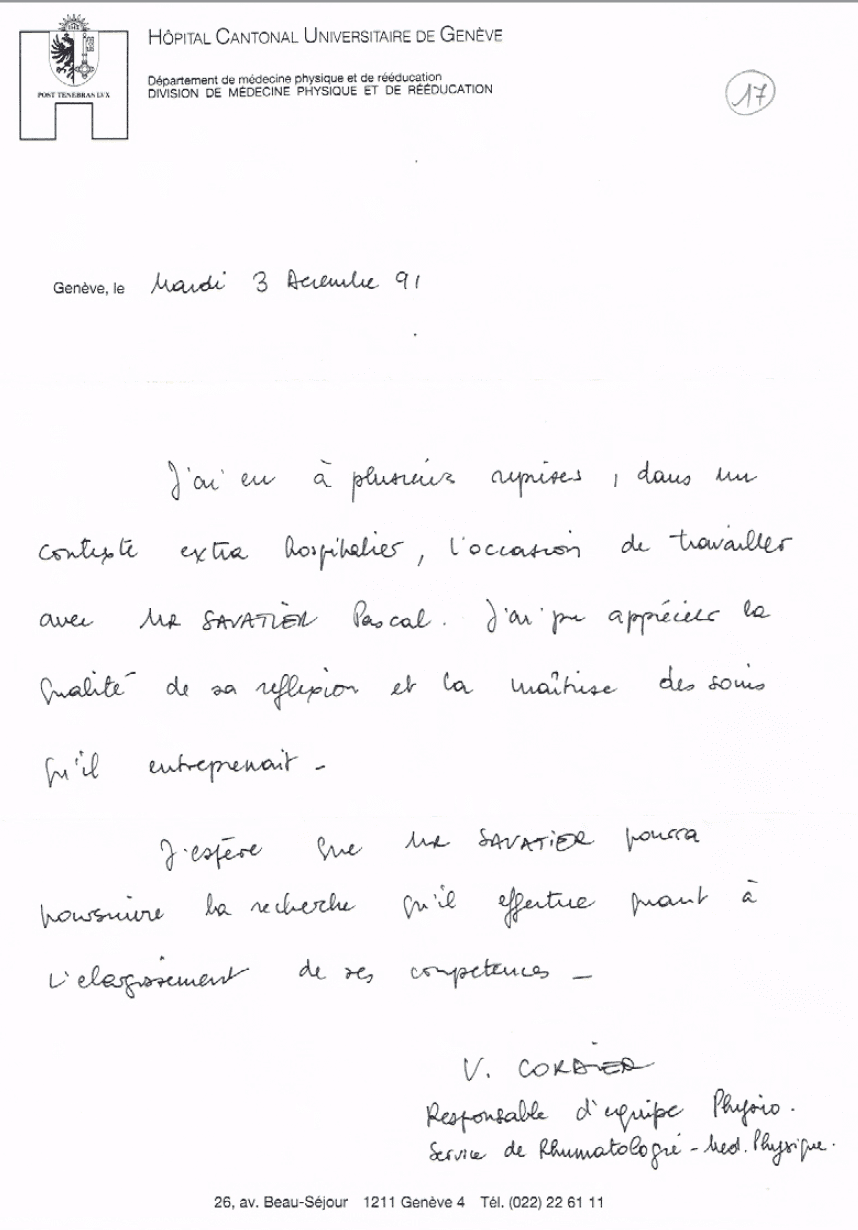 HÔPITAL CANTONAL UNIVERSITAIRE DE GENÈVE
Département de médecine physique et de rééducation
DIVISION DE MÉDECINE PHYSIQUE ET DE RÉÉDUCATION
POST TENEBRAS LVX
17
Genève, le Mardi 3 Décembre 91
J'ai eu à plusieurs reprises, dans un
contexte extra hospitalier, l'occasion de travailler
avec MR SAVATIER Pascal. J'ai pu apprécier la
qualité de sa reflexion et la maîtrise des soins
qu'il entreprenait -
J'espère que MR SAVATIER pourra
poursuivre la recherche qu'il effectue quant à
L'elargissement de ses competences -
V. CORDIER
Responsable d'equipe Physio.
Service de Rhumatologie - Med. Physique.
26, av. Beau-Séjour 1211 Genève 4 Tél. (022) 22 61 11